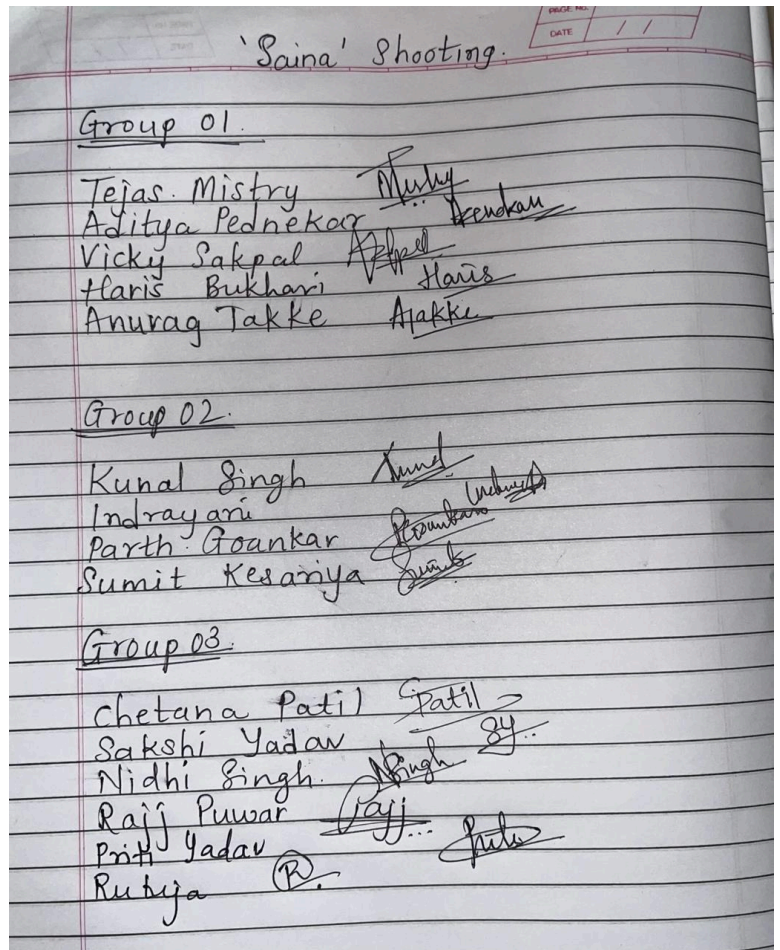 PAGE NO.
DATE / /
'Saina' Shooting.
Group 01.
Tejas. Mistry
Aditya Pednekar
Vicky Sakpal
Haris Bukhari Haris
Anurag Takke Atakke
Group 02.
Kunal Singh Kunal
Indrayani
Parth. Goankar
Sumit Kesariya Sumit
Group 03.
Chetana Patil CPatil
Sakshi Yadav SY..
Nidhi Singh. NSingh
Rajj Puwar Rajj...
Priti Yadav
Rutuja R.